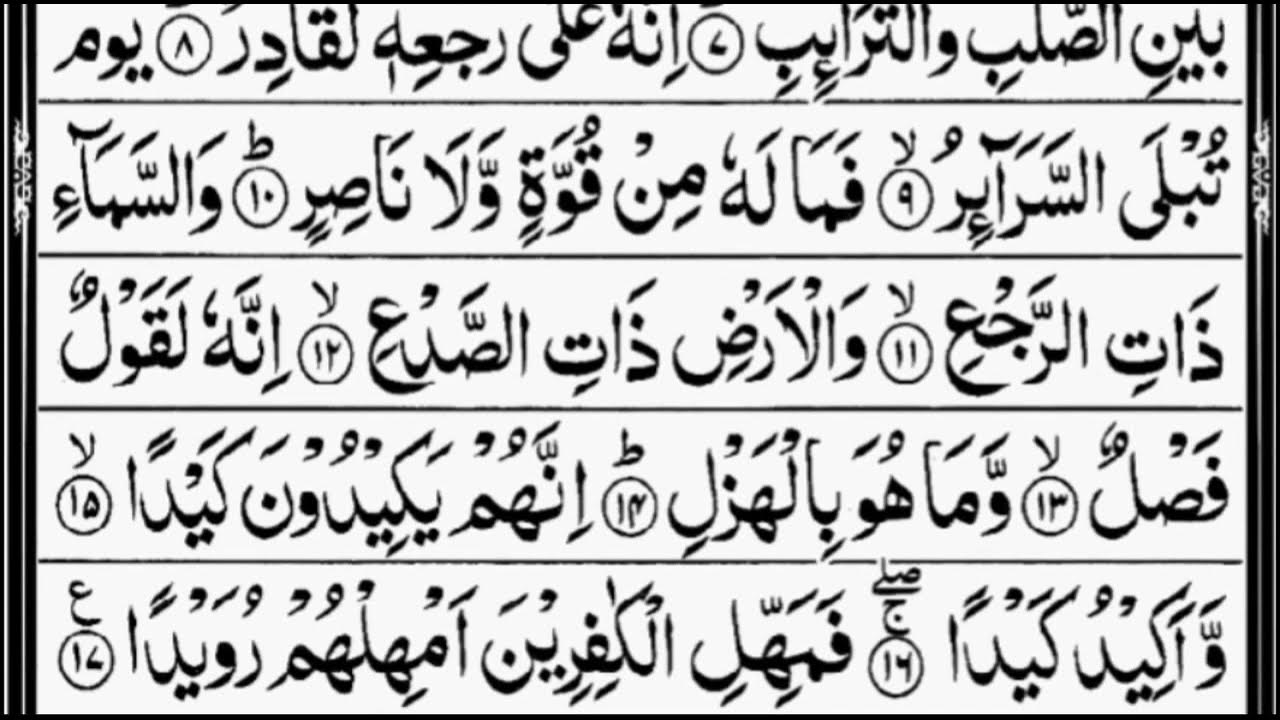 بَيْنِ الصُّلْبِ وَالتَّرَآئِبِ ۷ اِنَّهٗ عَلٰى رَجْعِهٖ لَقَادِرٌ ۸ يَوْمَ
تُبْلَى السَّرَآئِرُ ۙ۹ فَمَا لَهٗ مِنْ قُوَّةٍ وَّلَا نَاصِرٍ ؕ۱۰ وَالسَّمَآءِ
ذَاتِ الرَّجْعِ ۙ۱۱ وَالْاَرْضِ ذَاتِ الصَّدْعِ ۙ۱۲ اِنَّهٗ لَقَوْلٌ
فَصْلٌ ۙ۱۳ وَّمَا هُوَ بِالْهَزْلِ ؕ۱۴ اِنَّهُمْ يَكِيْدُوْنَ كَيْدًا ۙ۱۵
وَّاَكِيْدُ كَيْدًا ۖۚ۱۶ فَمَهِّلِ الْكٰفِرِيْنَ اَمْهِلْهُمْ رُوَيْدًا ع ۱۷